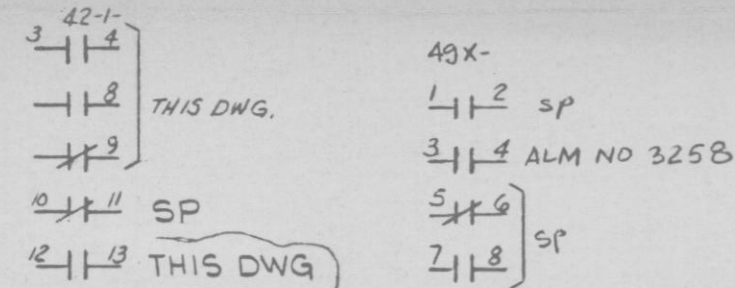 42-1-
3 4
8
THIS DWG.
9
10 11 SP
12 13 THIS DWG
49X-
1 2 SP
3 4 ALM NO 3258
5 6
SP
7 8